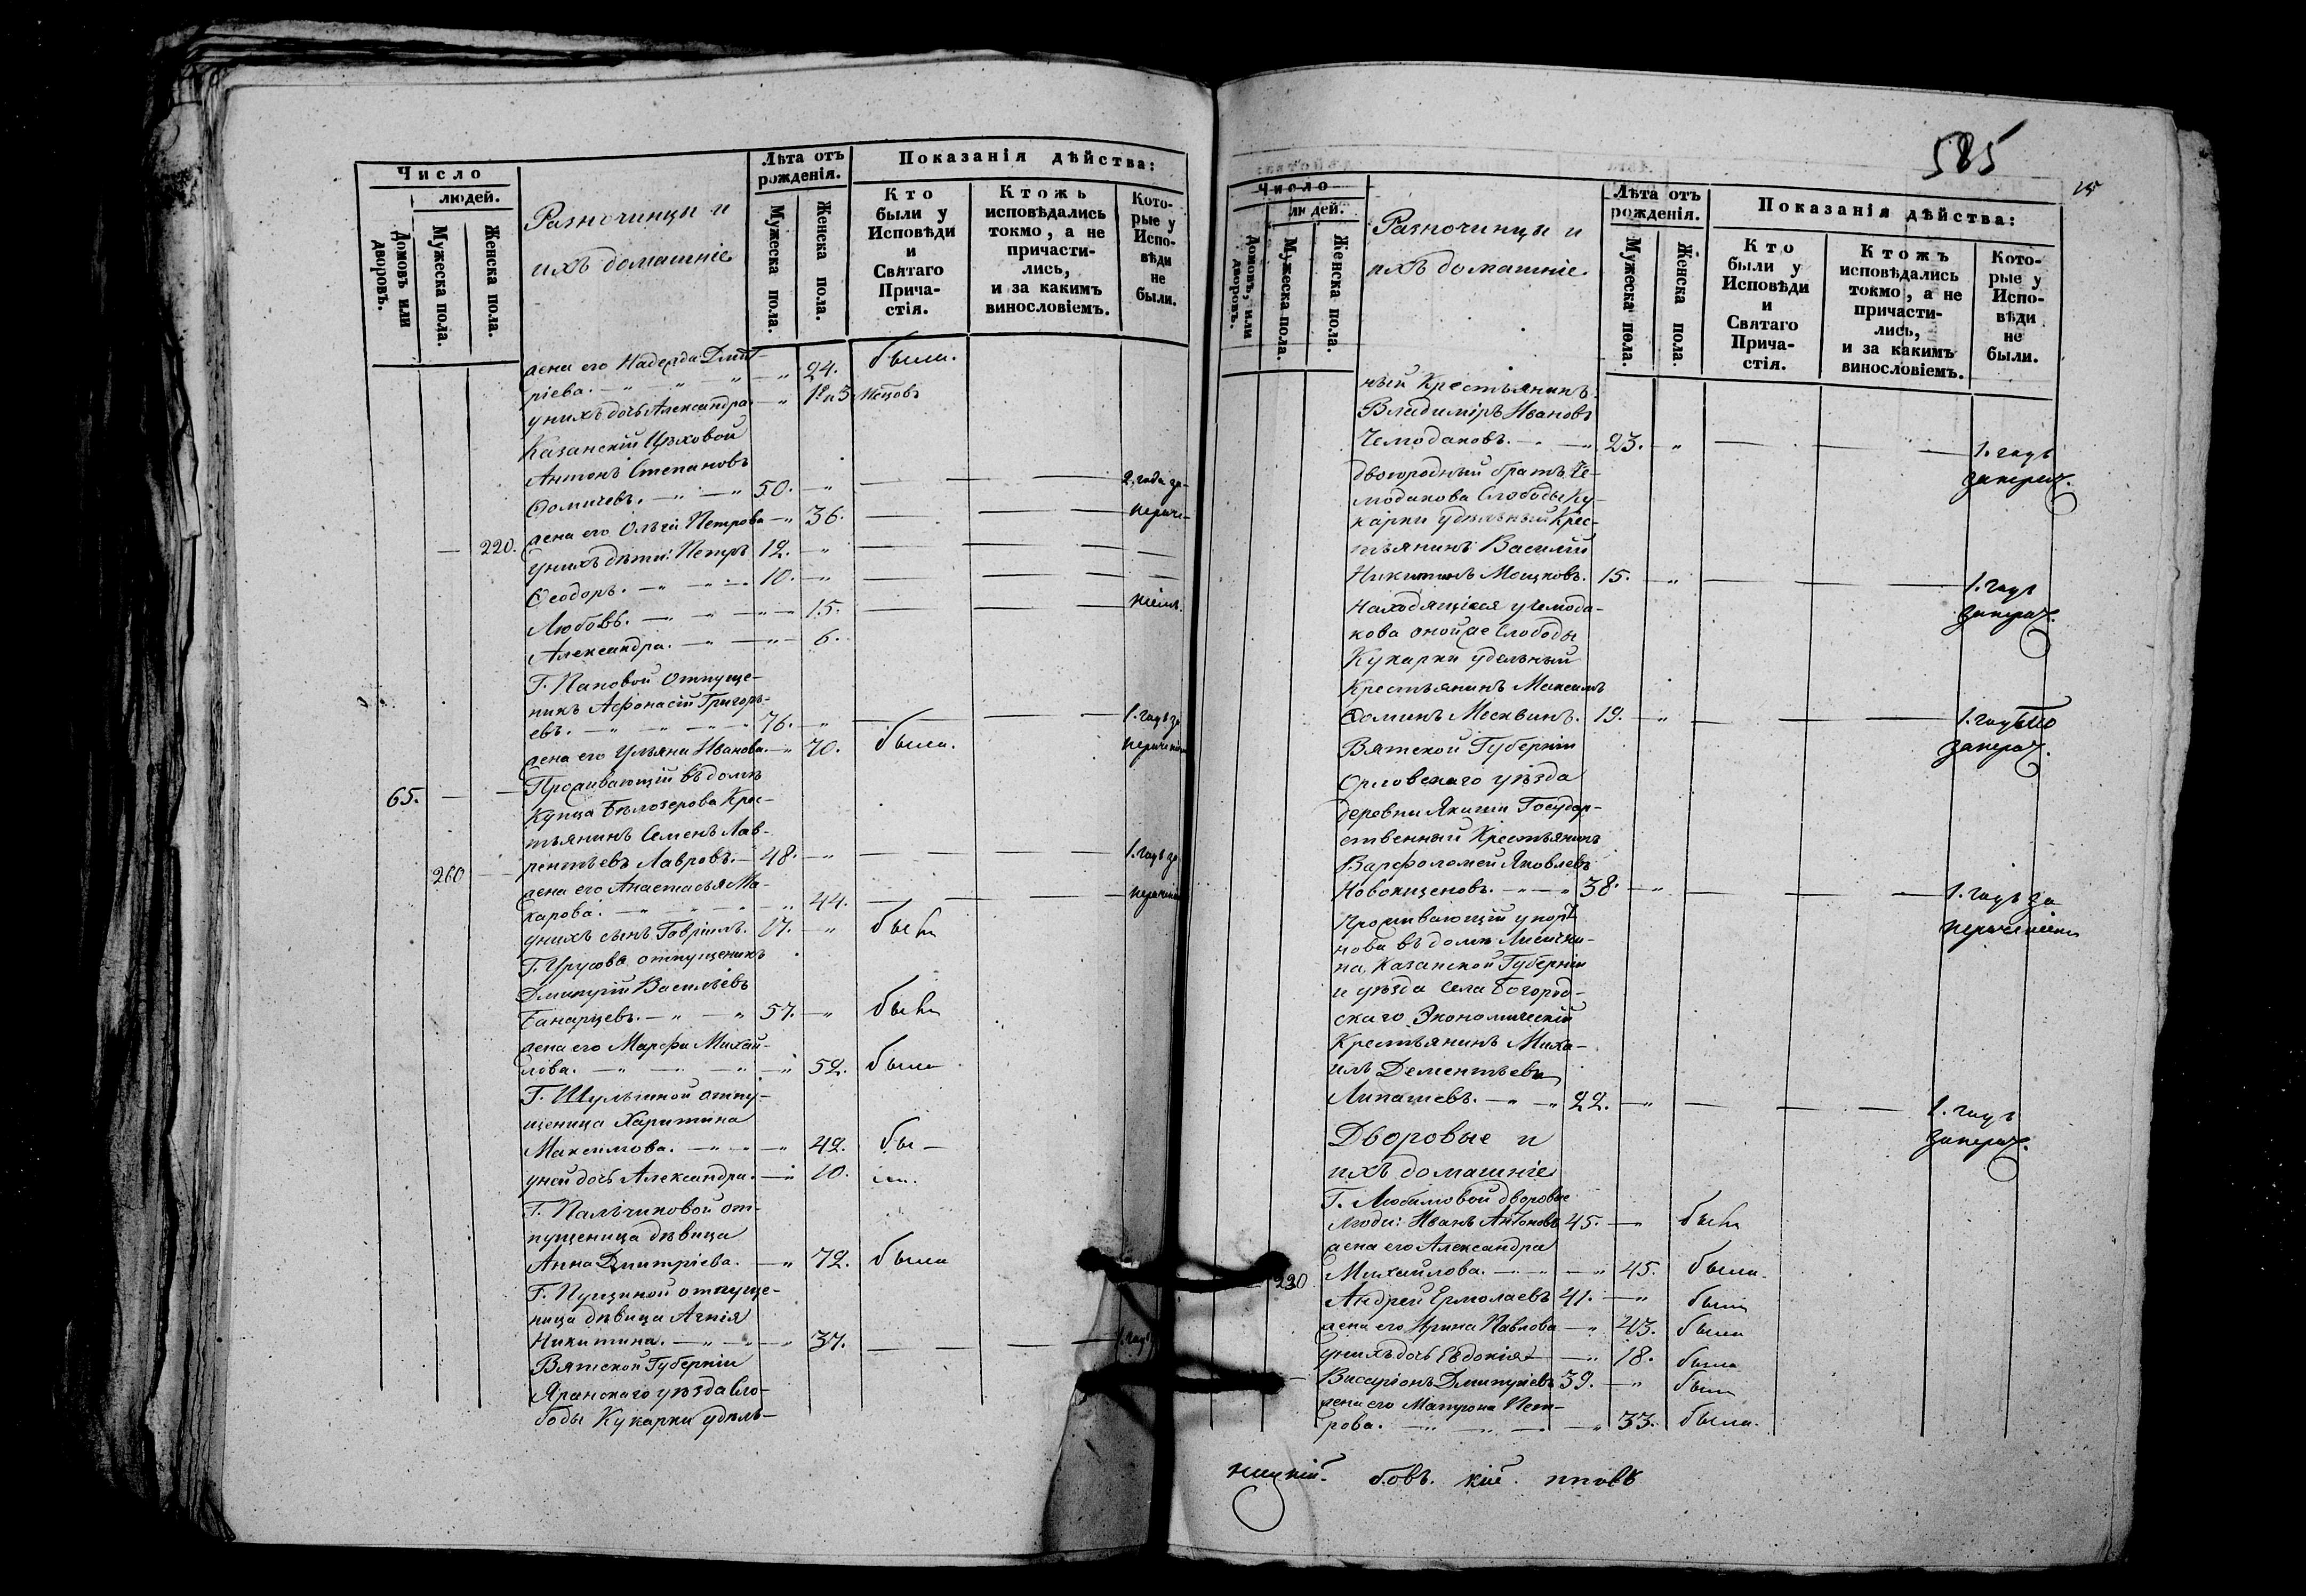 Число
людей.
Домовъ или дворовъ.
Мужеска пола.
Женска пола.
Разночинцы и
ихъ домашніе
Лѣта отъ рожденія.
Мужеска пола.
Женска пола.
Показанія дѣйства:
Кто были у Исповѣди и Святаго Причастія.
Ктожъ исповѣдались токмо, а не причастились, и за какимъ винословіемъ.
Которые у Исповѣди не были.
жена его Надежда Дмит-
ріева. 24. была.
у нихъ дочь Александра
Казанскій Цѣховой
Антонъ Степановъ
Ѳомичевъ. 50. 2. года за-
жена его Ольга Петрова 36.
220. у нихъ дѣти: Петръ 12.
Ѳеодоръ. 10.
Любовь. 15.
Александра. 6.
Г. Пановой отпуще-
никъ Афонасій Григорь-
евъ. 76. 1. годъ за
жена его Ульяна Иванова. 70. была.
65. Проживающій въ домѣ
Купца Бѣлозерова Крес-
тьянинъ Семенъ Лав-
260 рентьевъ Лавровъ. 48. 1. годъ за
жена его Анастасья Ма-
карова. 44.
у нихъ сынъ Гавріилъ. 17. былъ
Г. Урусова отпущеникъ
Дмитрій Васильевъ
57. былъ
жена его Марфа Михай-
лова. 52. была
Г. Шульгиной отпу-
щеница Харитина
Максимова. 42. бы-
у ней дочь Александра. 10. ли.
Г. Пальчиковой от-
пущеница дѣвица
Анна Дмитріева. 72. была
Г. Пущиной отпуще-
ница дѣвица Агнія
Никитина. 37. 1. годъ
Вятской Губерніи
Яранскаго уѣзда Сло-
боды Кукарки удѣль-
585
Число
людей.
Домовъ, или дворовъ.
Мужеска пола.
Женска пола.
Разночинцы и
ихъ домашніе
Лѣта отъ рожденія.
Мужеска пола.
Женска пола.
Показанія дѣйства:
Кто были у Исповѣди и Святаго Причастія.
Ктожъ исповѣдались токмо, а не причастились, и за какимъ винословіемъ.
Которые у Исповѣди не были.
ный Крестьянинъ
Владиміръ Ивановъ
Чемодановъ. 23. 1. годъ
двоюродный братъ Че-
моданова Слободы Ку-
карки удѣльный Крес-
тьянинъ Василій
Никитинъ 15. 1. годъ
Находящійся у Чемода-
нова оной же Слободы
Кукарки удѣльный
Крестьянинъ Максимъ
Ѳоминъ Москвинъ. 19.
Вятской Губерніи
Орловскаго уѣзда
деревни Государ-
ственный Крестьянинъ
Варфоломей Яковлевъ
38. 1. годъ за
Проживающій у
въ домѣ
на, Казанской Губерніи
и уѣзда села Богород-
скаго Экономическій
Крестьянинъ Миха-
илъ Дементьевъ
Липашевъ. 22. 1. годъ
Дворовые и
ихъ домашніе
Г. Любимовой дворовые
люди: Иванъ Антоновъ 45. былъ
жена его Александра
220 Михайлова. 45. была.
Андрей Ермолаевъ 41. былъ
жена его Ирина Павлова 43. была
у нихъ дочь Евдокія 18. была
Висаріонъ Дмитріевъ 39. былъ
жена его Матрона Пет-
рова. 33. была.